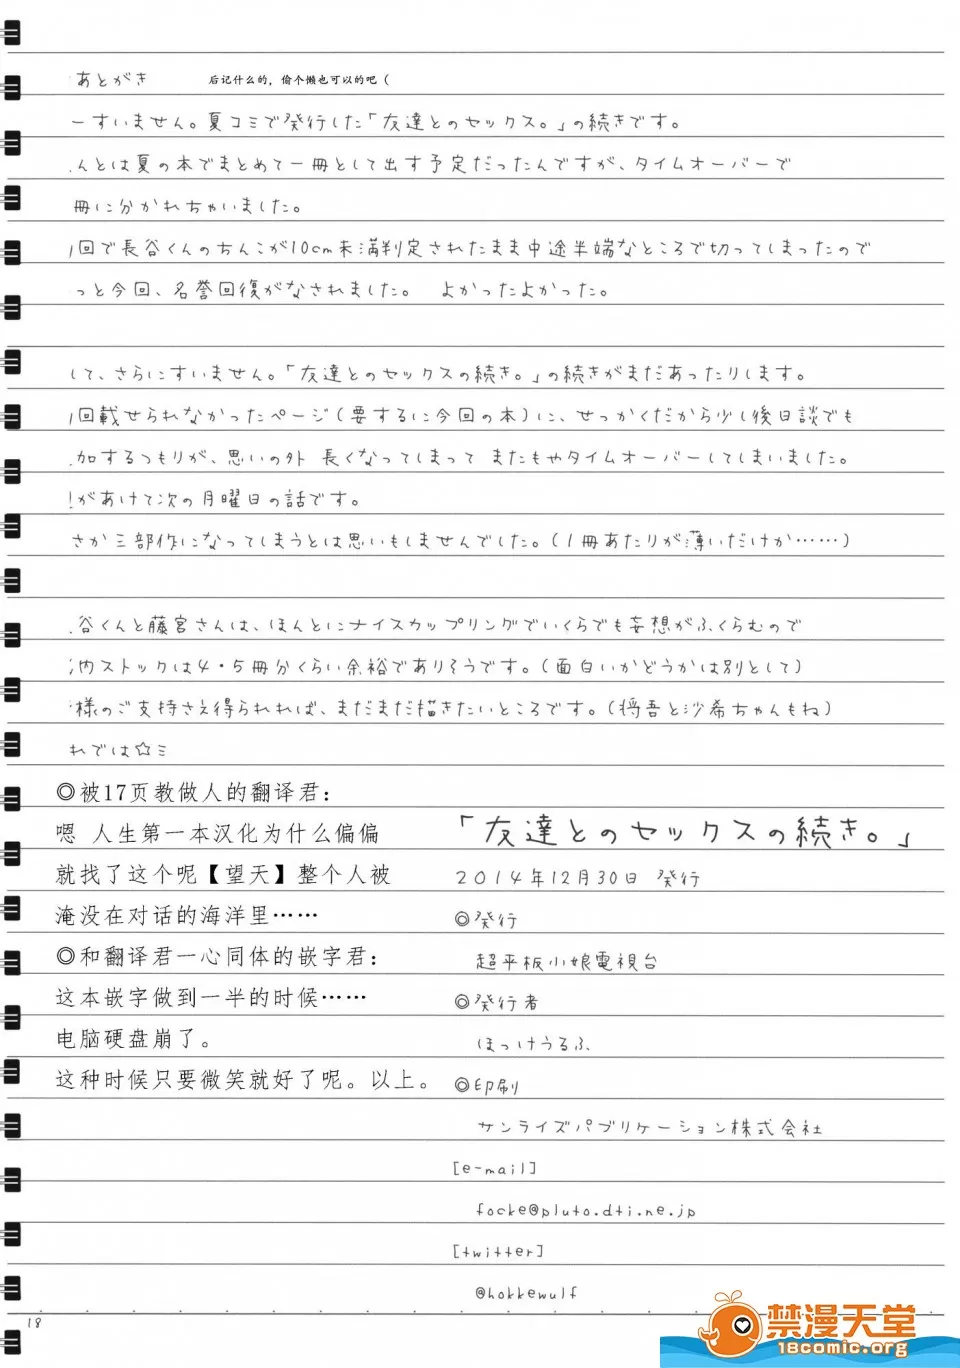 あとがき　　后记什么的，偷个懒也可以的吧（
ーすいません。夏コミで発行した「友達とのセックス。」の続きです。
んとは夏の本でまとめて一冊として出す予定だったんですが、タイムオーバーで
冊に分かれちゃいました。
回で長谷くんのちんこが10cm未満判定されたまま中途半端なところで切ってしまったので
っと今回、名誉回復がなされました。　よかったよかった。
して、さらにすいません。「友達とのセックスの続き。」の続きがまだあったりします。
回載せられなかったページ(要するに今回の本)に、せっかくだから少し後日談でも
加するつもりが、思いの外 長くなってしまって またもやタイムオーバーしてしまいました。
があけて次の月曜日の話です。
さか三部作になってしまうとは思いもしませんでした。(1冊あたりが薄いだけか……)
谷くんと藤宮さんは、ほんとにナイスカップリングでいくらでも妄想がふくらむので
内ストックは4・5冊分くらい余裕でありそうです。(面白いかどうかは別として)
様のご支持さえ得られれば、まだまだ描きたいところです。(将吾と沙希ちゃんもね)
れでは☆ミ
◎被17页教做人的翻译君：
嗯 人生第一本汉化为什么偏偏
就找了这个呢【望天】整个人被
淹没在对话的海洋里……
◎和翻译君一心同体的嵌字君：
这本嵌字做到一半的时候……
电脑硬盘崩了。
这种时候只要微笑就好了呢。以上。
「友達とのセックスの続き。」
2014年12月30日 発行
◎発行
超平板小娘電視台
◎発行者
ほっけうるふ
◎印刷
サンライズパブリケーション株式会社
[e-mail]
focke@pluto.dti.ne.jp
[twitter]
@hokkewulf
18
禁漫天堂
18comic.org